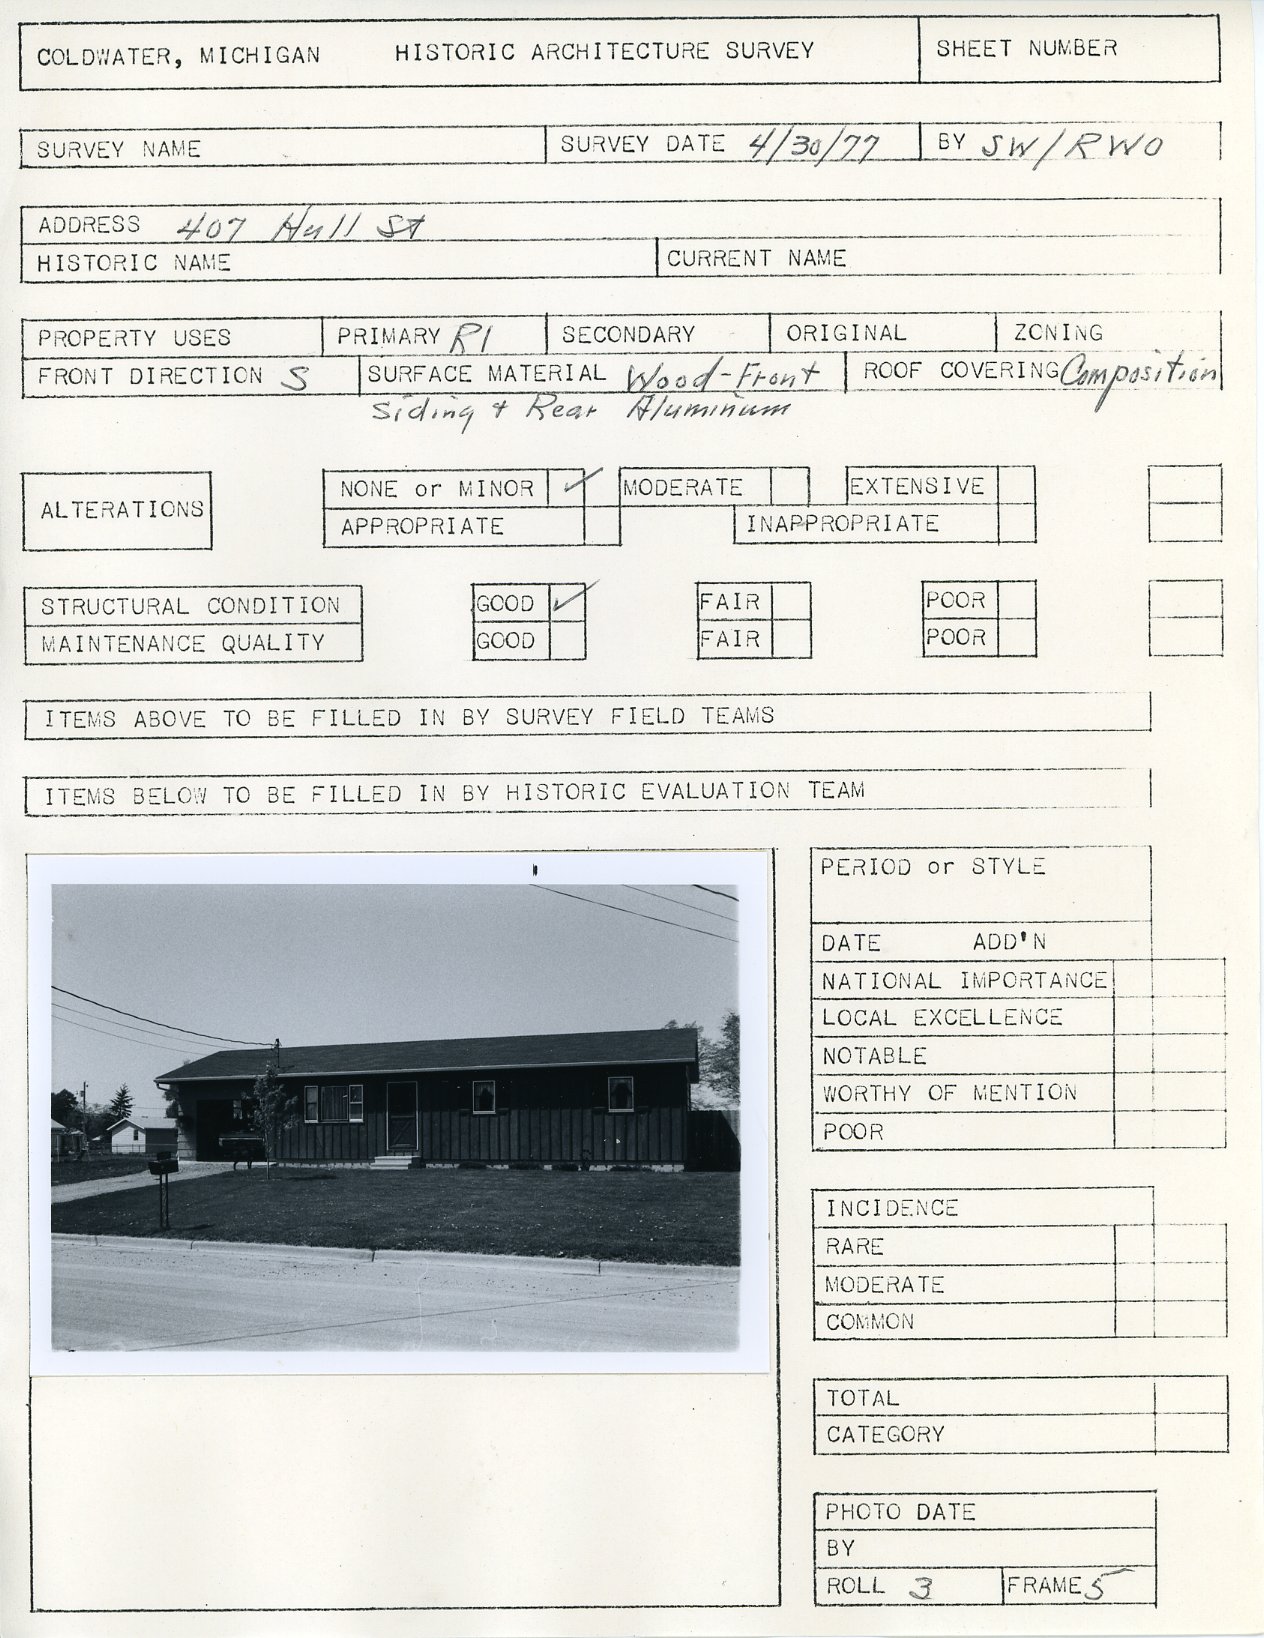 COLDWATER, MICHIGAN HISTORIC ARCHITECTURE SURVEY SHEET NUMBER
SURVEY NAME SURVEY DATE 4/30/77 BY SW/RWO
ADDRESS 407 Hull St
HISTORIC NAME CURRENT NAME
PROPERTY USES PRIMARY R1 SECONDARY ORIGINAL ZONING
FRONT DIRECTION S SURFACE MATERIAL Wood-Front ROOF COVERING Composition
Siding + Rear Aluminum
ALTERATIONS NONE or MINOR ✓ MODERATE EXTENSIVE
APPROPRIATE INAPPROPRIATE
STRUCTURAL CONDITION GOOD ✓ FAIR POOR
MAINTENANCE QUALITY GOOD FAIR POOR
ITEMS ABOVE TO BE FILLED IN BY SURVEY FIELD TEAMS
ITEMS BELOW TO BE FILLED IN BY HISTORIC EVALUATION TEAM
PERIOD or STYLE
DATE ADD'N
NATIONAL IMPORTANCE
LOCAL EXCELLENCE
NOTABLE
WORTHY OF MENTION
POOR
INCIDENCE
RARE
MODERATE
COMMON
TOTAL
CATEGORY
PHOTO DATE
BY
ROLL 3 FRAME 5